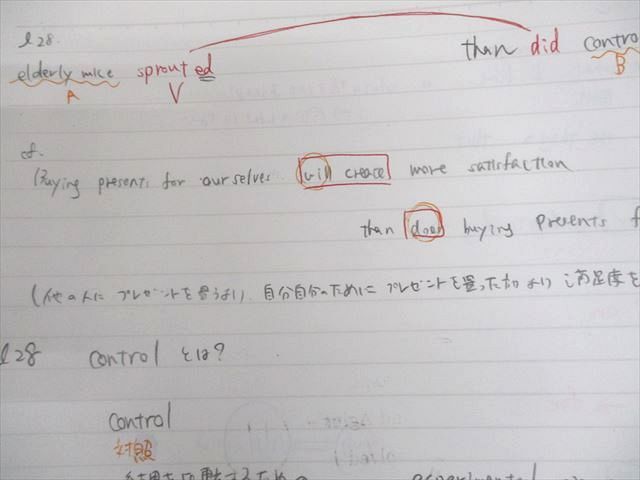 l 28.
than did contro
elderly mice sprouted
A V B
cf.
Buying presents for ourselves will create more satisfaction
than does buying presents f
(他の人にプレゼントを買うより、自分自分のためにプレゼントを買った方がより満足度を
l 28 control とは?
control
対照